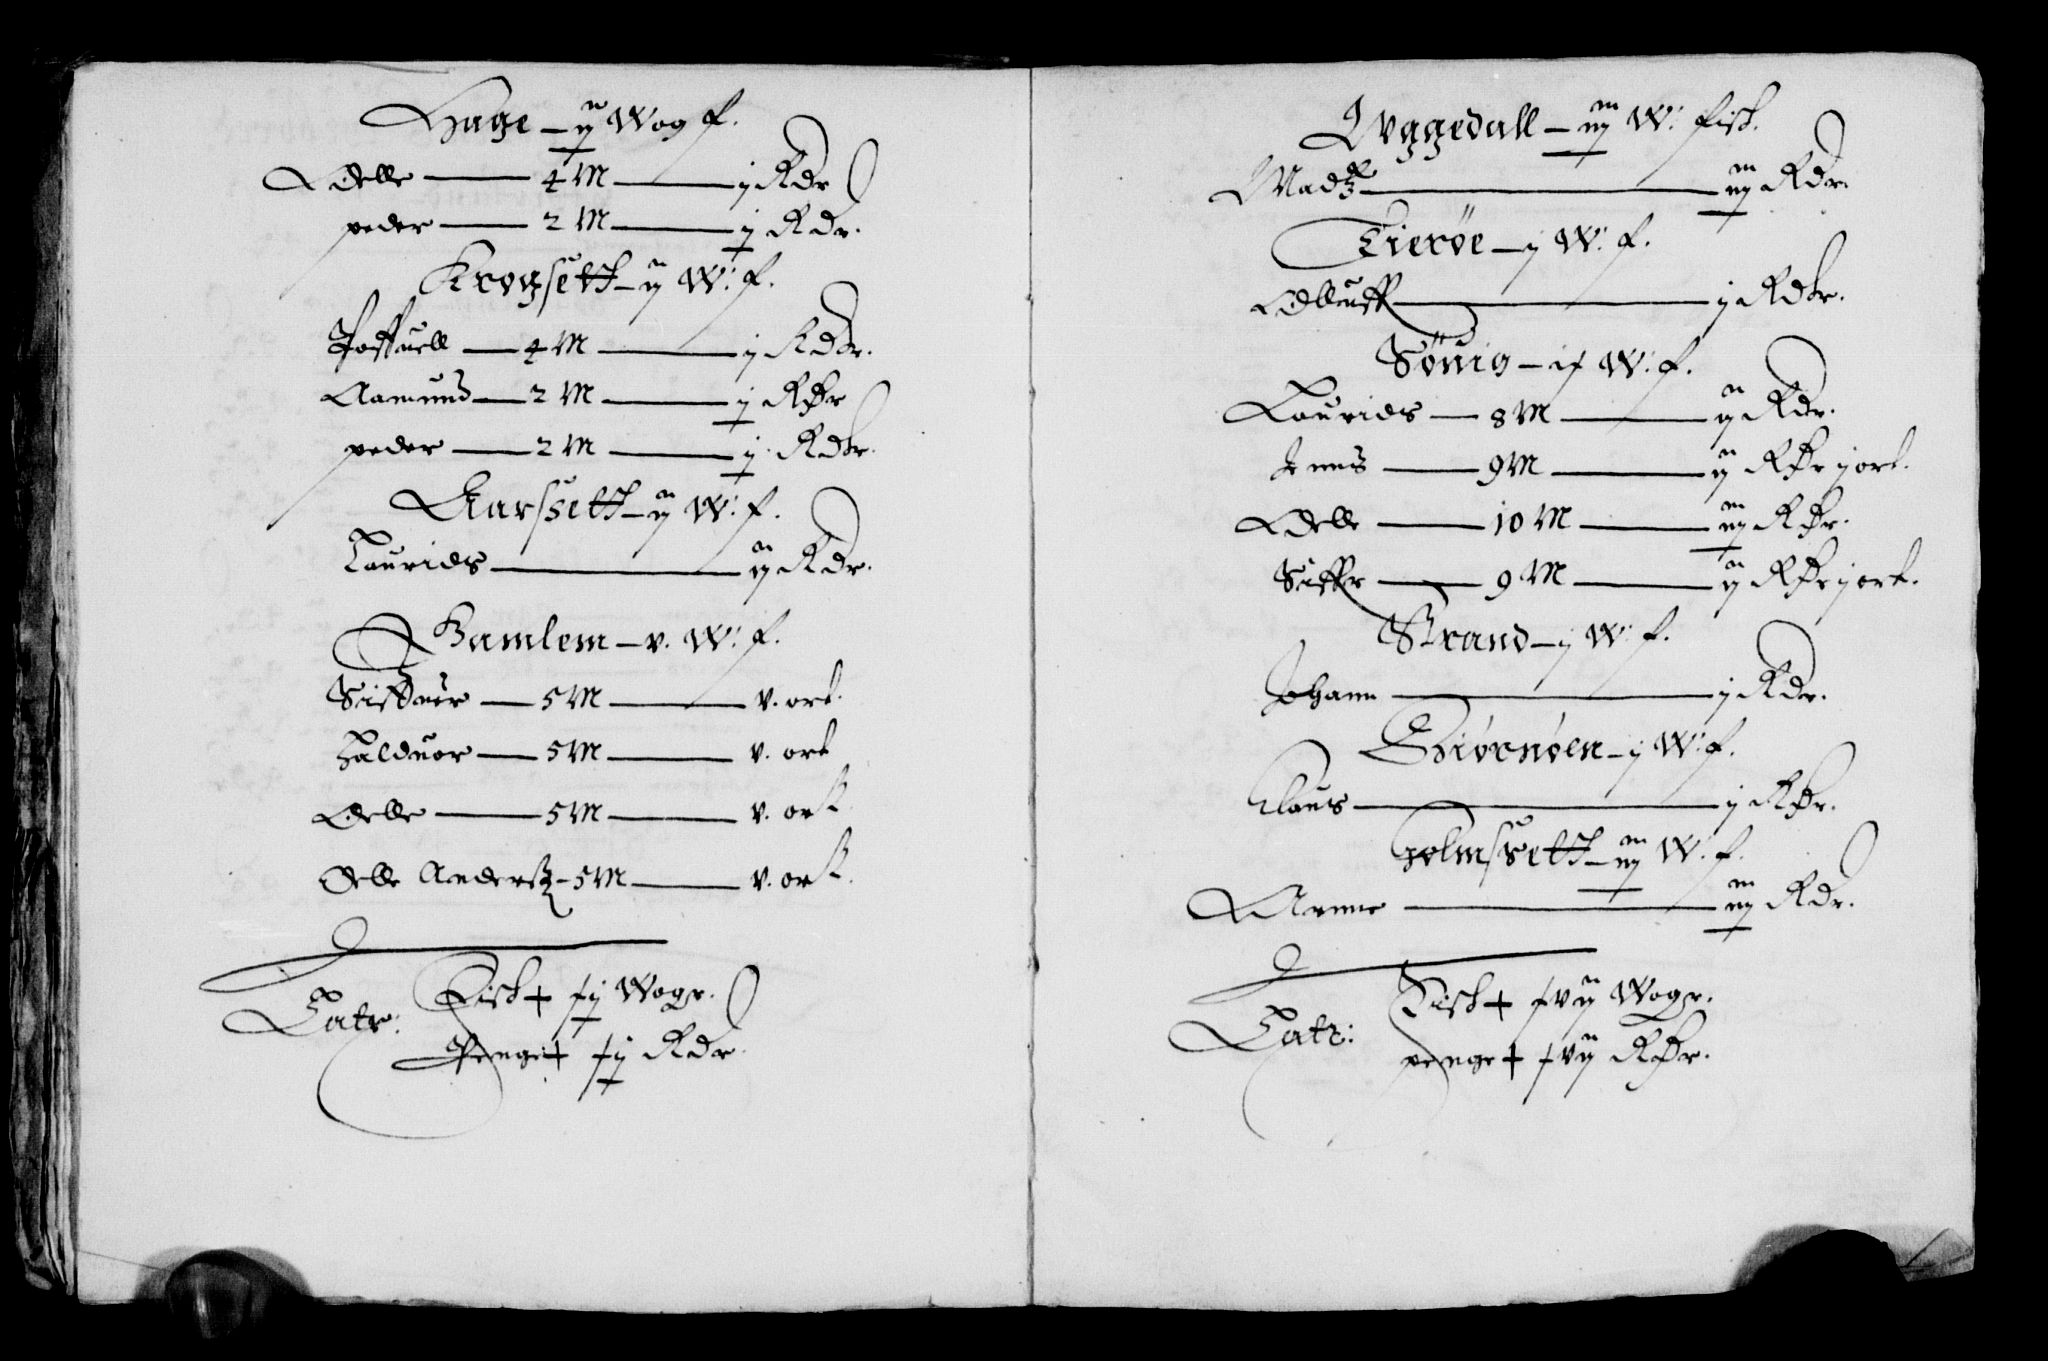 Hage – ij Wog f.
Oelle — 4 M — j Rdr
peder — 2 M — j Rdr.
Krogsett – ij W: f.
Poffuell — 4 M — j Rdr.
Aamund — 2 M — j Rdr
peder — 2 M — j Rdr.
Aarssett – ij W: f.
Laurids — ij Rdr.
Gamlem – v. W: f.
Siffuer — 5 M — v. ort.
Halduor — 5 M — v. ort
Oelle — 5 M — v. ort
Oelle Anderss – 5 M — v. ort.
Latr: Fisk + xij Wogr.
Penge + xij Rdr.
Vggedall – iij W: fisk.
Madz — iij Rdr.
Fierøe – j W: f.
Olluff — j Rdr.
Sønig – ix W: f.
Laurids — 8 M — ij Rdr.
Jens — 9 M — ij Rdr j ort.
Oelle — 10 M — iij Rdr.
Siffr — 9 M — ij Rdr j ort.
Strand – j W: f.
Johann — j Rdr.
Biørnøen – j W: f.
Claus — j Rdr.
Holmssett – iij W. f.
Arnne — iij Rdr.
Latr: Fisk + xvij Wogr.
penge + xvij Rdr.